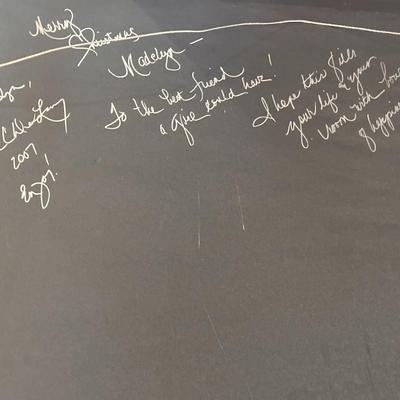 Merry
Christmas
Madelyn —
To the best friend
a girl could have!
I hope this fills
your life & your
room with
of
2007
Enjoy!